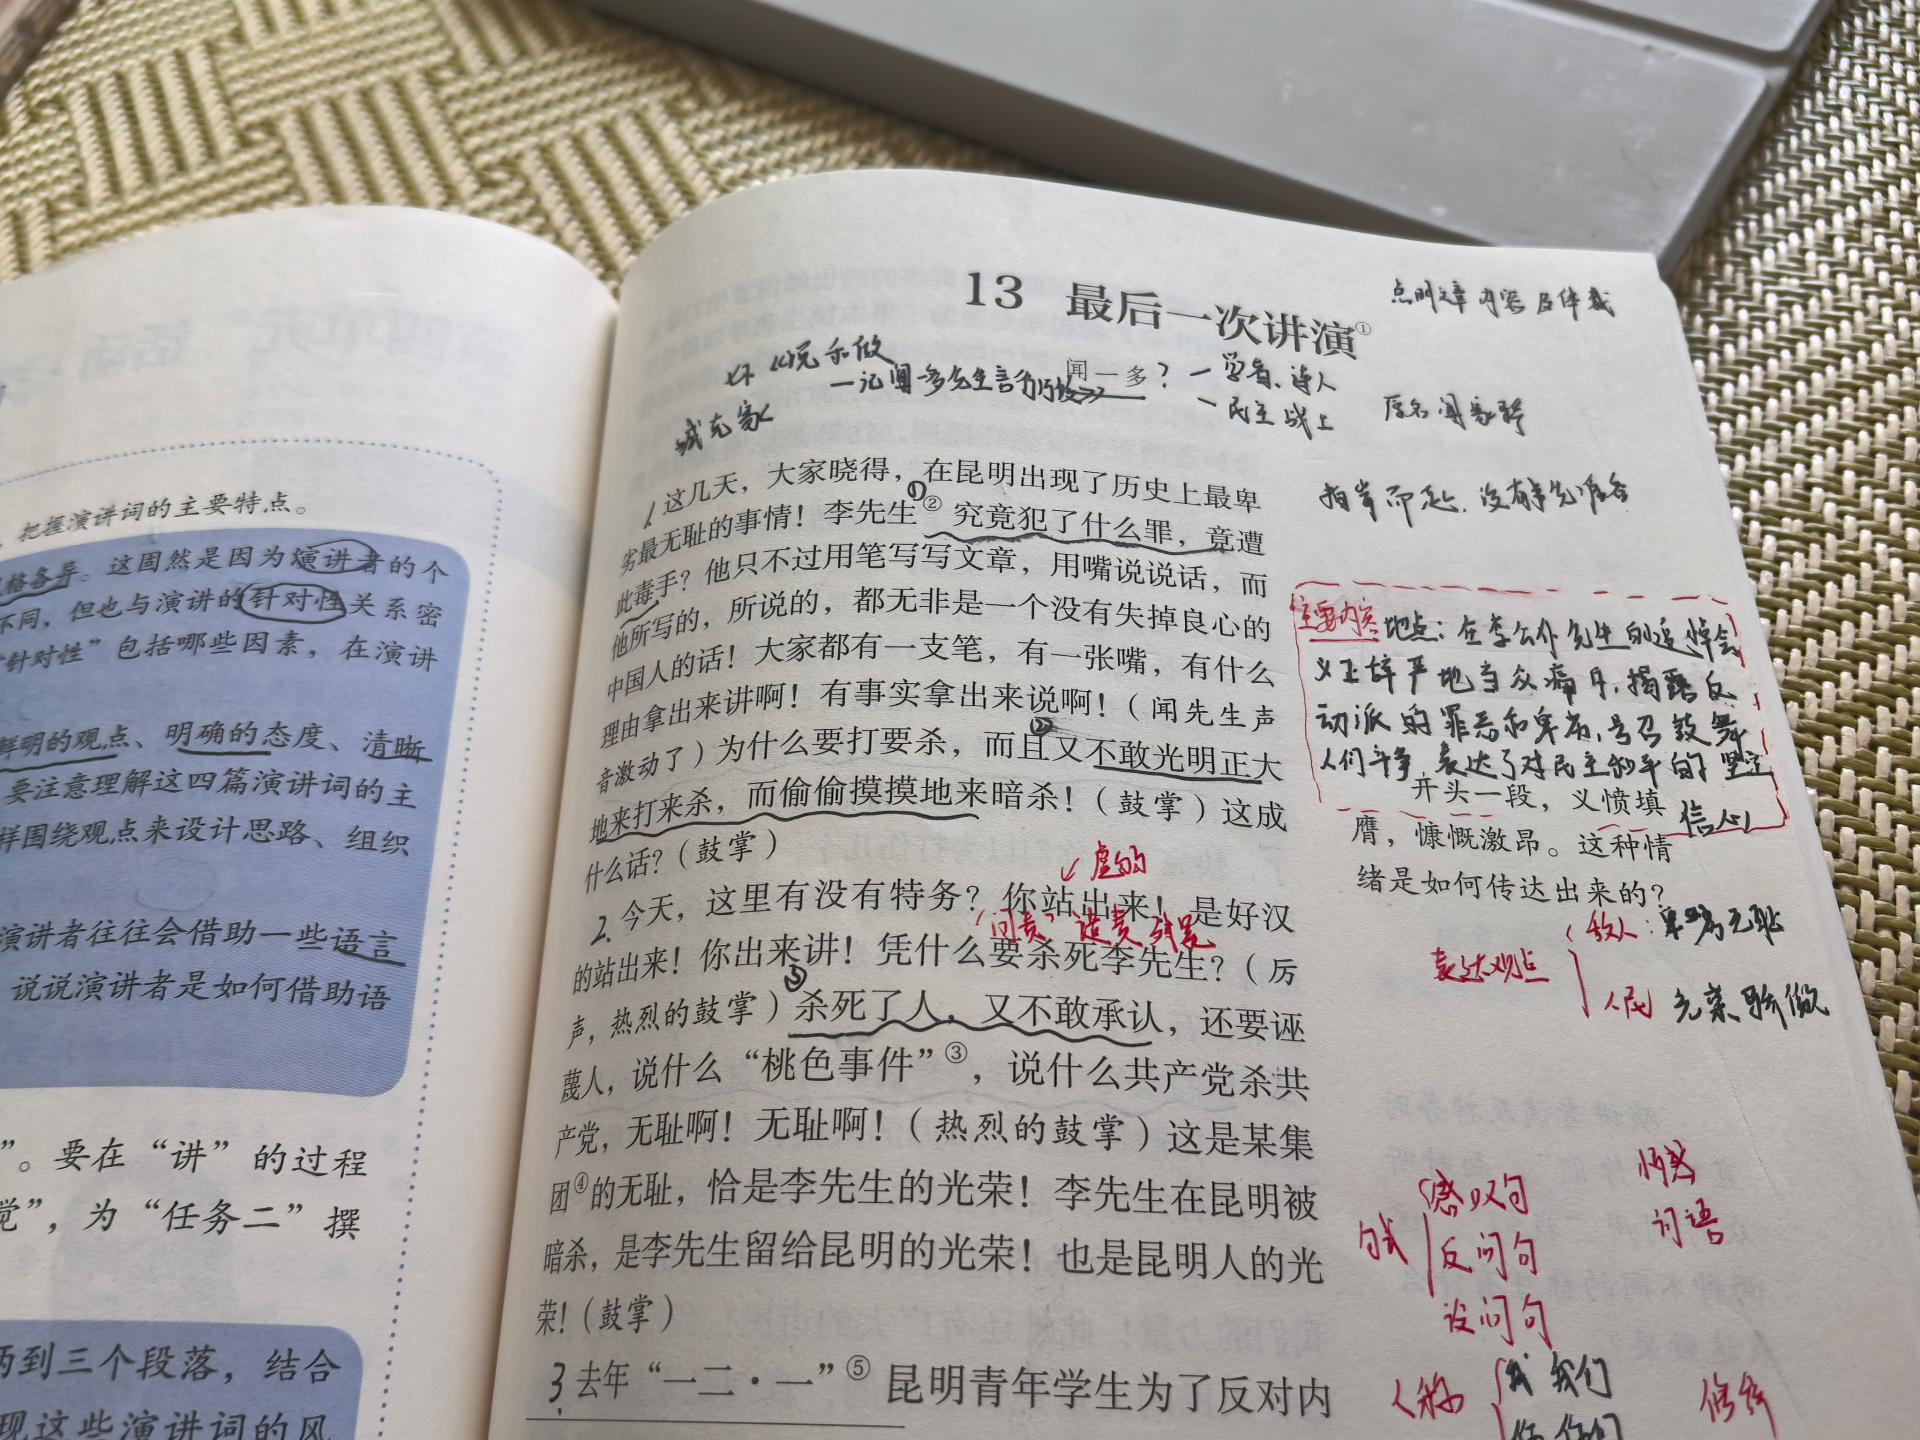 把握演讲词的主要特点。
格各异。这固然是因为演讲者的个
不同，但也与演讲的针对性关系密
“针对性”包括哪些因素，在演讲
鲜明的观点、明确的态度、清晰
要注意理解这四篇演讲词的主
样围绕观点来设计思路、组织
演讲者往往会借助一些语言
说说演讲者是如何借助语
”。要在“讲”的过程
觉”，为“任务二”撰
两到三个段落，结合
现这些演讲词的风
13 最后一次讲演①
点明文章内容及体裁
《说和做
—记闻一多先生言行片段》
臧克家
闻一多？
—学者、诗人
—民主战士
原名闻家骅
拍岸而起，没有事先准备
1. 这几天，大家晓得，在昆明出现了历史上最卑
劣最无耻的事情！李先生②究竟犯了什么罪，竟遭
此毒手？他只不过用笔写写文章，用嘴说说话，而
他所写的，所说的，都无非是一个没有失掉良心的
中国人的话！大家都有一支笔，有一张嘴，有什么
理由拿出来讲啊！有事实拿出来说啊！（闻先生声
音激动了）为什么要打要杀，而且又不敢光明正大
地来打来杀，而偷偷摸摸地来暗杀！（鼓掌）这成
什么话？（鼓掌）
2. 今天，这里有没有特务？你站出来！是好汉
的站出来！你出来讲！凭什么要杀死李先生？（厉
声，热烈的鼓掌）杀死了人，又不敢承认，还要诬
蔑人，说什么“桃色事件”③，说什么共产党杀共
产党，无耻啊！无耻啊！（热烈的鼓掌）这是某集
团④的无耻，恰是李先生的光荣！李先生在昆明被
暗杀，是李先生留给昆明的光荣！也是昆明人的光
荣！（鼓掌）
3. 去年“一二·一”⑤昆明青年学生为了反对内
主要内容 地点：在李公仆先生的追悼会
义正辞严地当众痛斥，揭露反
动派的罪恶和卑劣，号召鼓舞
人们斗争，表达了对民主和平的坚定
信心
开头一段，义愤填
膺，慷慨激昂。这种情
绪是如何传达出来的？
表达观点
敌人：卑劣无耻
人民 光荣骄傲
句式
感叹句
反问句
设问句
词语
人称
我 我们
你 你们
修辞